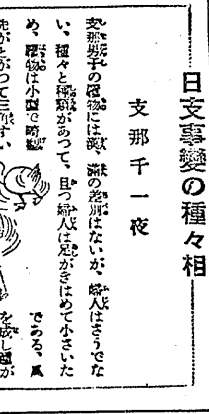 日支事變の種々相
支那千一夜
支那男子の履物には漢、滿の差別はないが、婦人はさうでな
い、種々と種類があつて、且つ婦人は足がきはめて小さいた
め、履物は小型で畸
である、
を成し